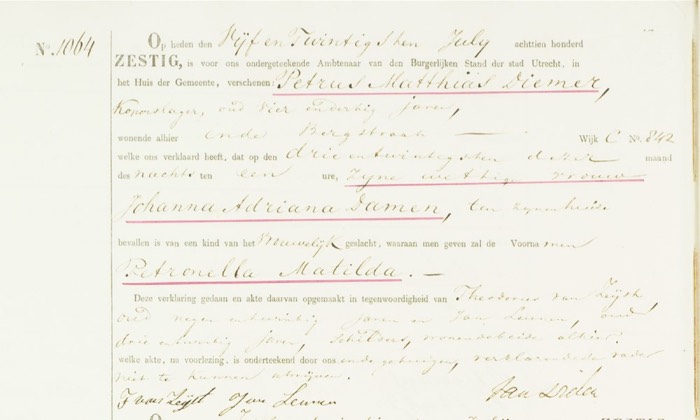 No. 1064
Op heden den Vijf en Twintigsten July achttien honderd
ZESTIG, is voor ons ondergeteekende Ambtenaar van den Burgerlijken Stand der stad Utrecht, in
het Huis der Gemeente, verschenen: Petrus Matthias Diemer,
Koperslager, oud vier en dertig jaren,
wonende alhier Bergstraat — Wijk C No. 842
welke ons verklaard heeft, dat op den drie en twintigsten dezer maand
des nachts ten een ure, zijne wettige vrouw
Johanna Adriana Damen, ten zijnen huize
bevallen is van een kind van het Vrouwelijk geslacht, waaraan men geven zal de Voornamen
Petronella Matilda. —
Deze verklaring gedaan en akte daarvan opgemaakt in tegenwoordigheid van Theodorus van Zeijst,
oud negen en twintig jaren en Jan Leenen, oud
drie en jaren, schilders, wonende beide alhier.
welke akte, na voorlezing, is onderteekend door ons en de getuigen, verklarende vader
niet te kunnen
T van Zeijst Jan Leenen